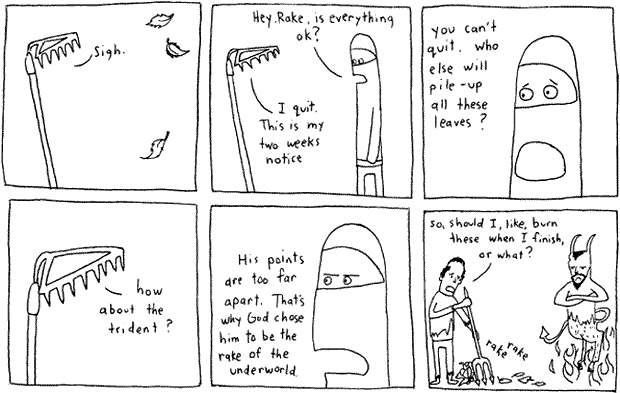 Sigh.
Hey Rake, is everything
ok?
I quit.
This is my
two weeks
notice
you can't
quit. who
else will
pile-up
all these
leaves?
how
about the
trident?
His points
are too far
apart. That's
why God chose
him to be the
rake of the
underworld.
so, should I, like, burn
these when I finish,
or what?
rake
rake